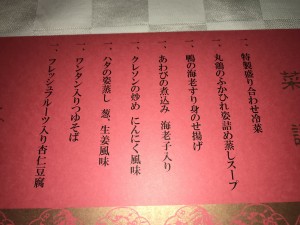 一、特製盛り合わせ冷菜
一、丸鶏のふかひれ姿詰め蒸しスープ
一、鴨の海老すり身のせ揚げ
一、あわびの煮込み 海老子入り
一、クレソンの炒め にんにく風味
一、ハタの姿蒸し 葱、生姜風味
一、ワンタン入りつゆそば
一、フレッシュフルーツ入り杏仁豆腐
菜